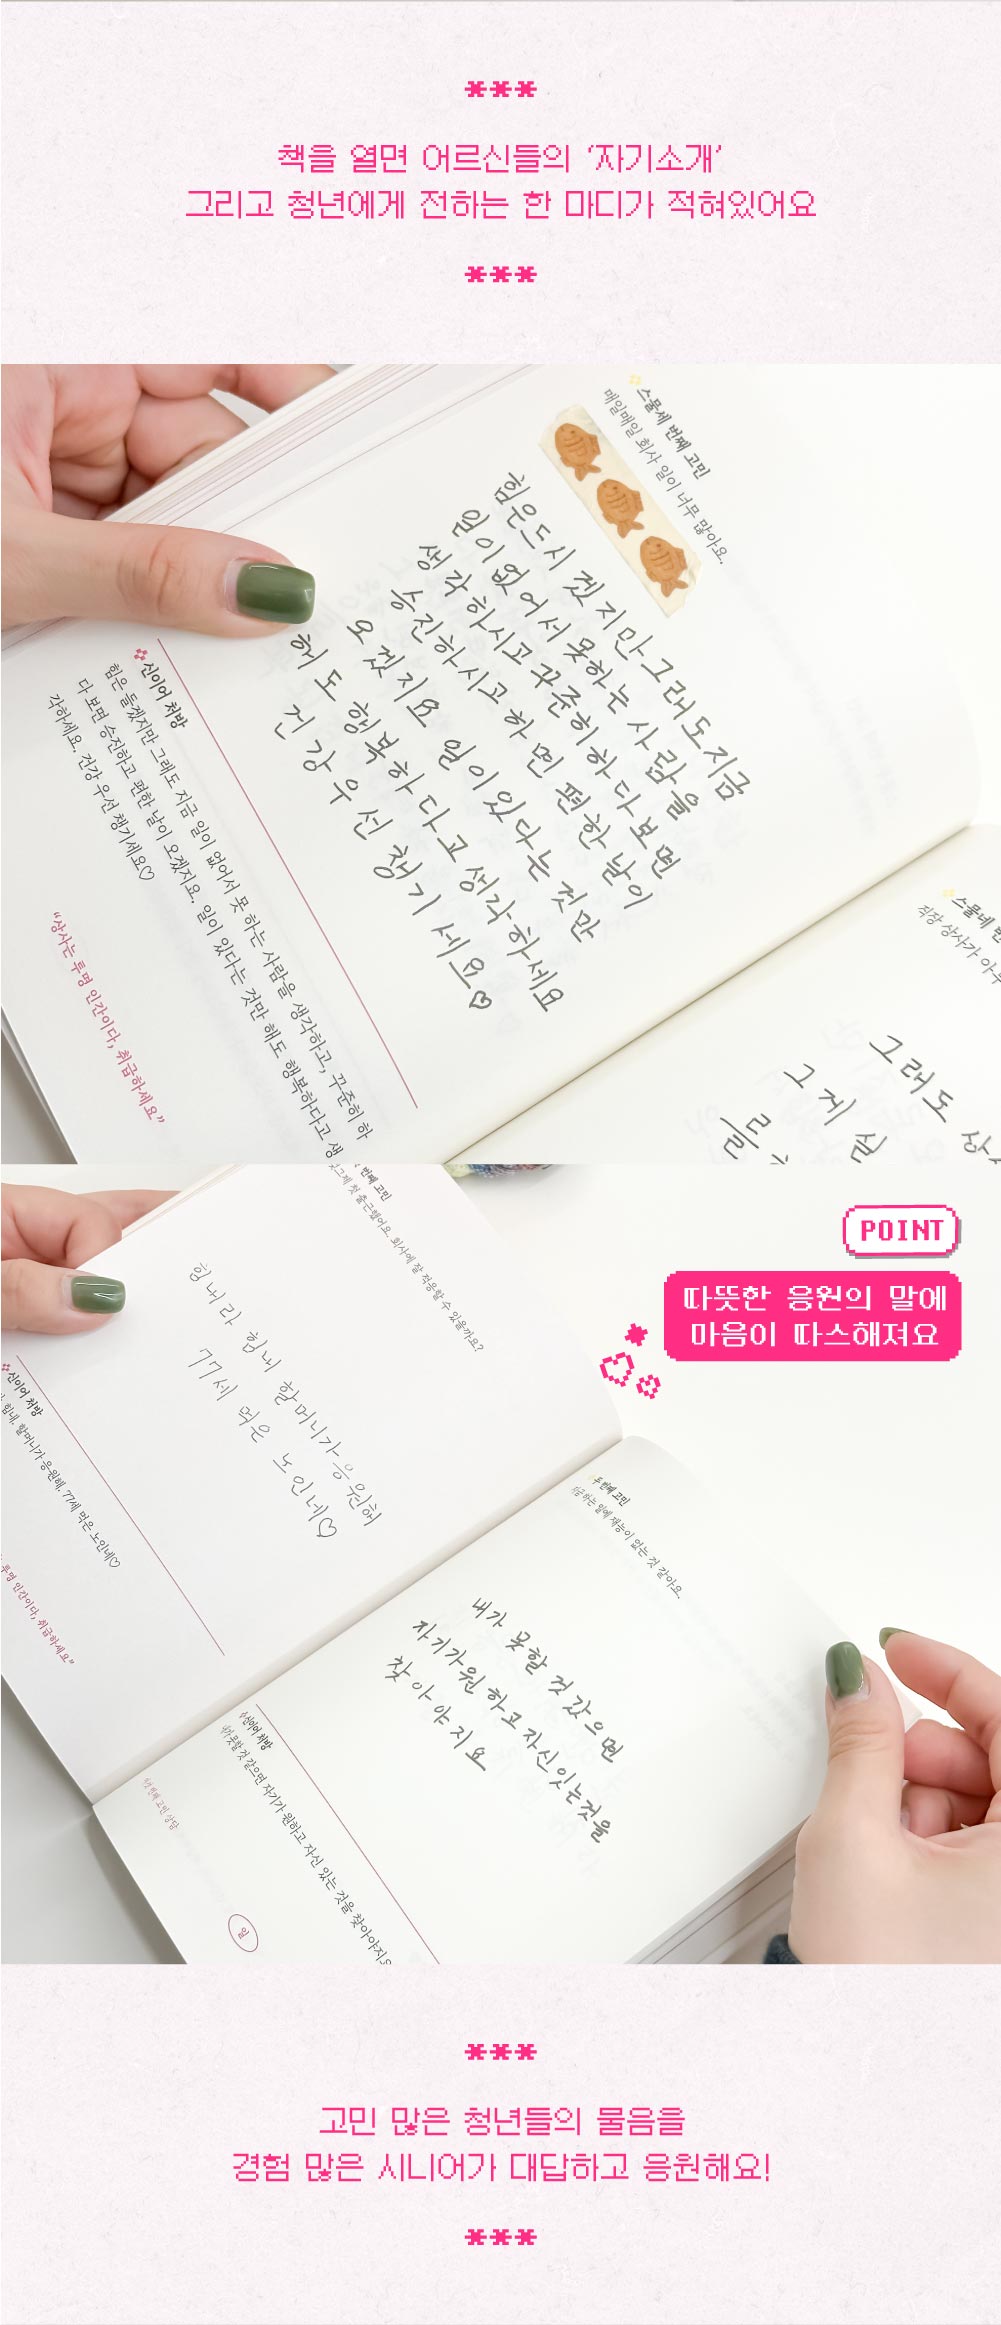 ***
책을 열면 어르신들의 ‘자기소개’
그리고 청년에게 전하는 한 마디가 적혀있어요
***
스물세 번째 고민
매일매일 회사 일이 너무 많아요.
힘은드시겠지만그래도지금
일이없어서못하는 사람을
생각하시고꾸준히하다보면
승진하시고하면 편한날이
오겠지요 일이있다는것만
해도 행복하다고생각하세요
건강우선챙기세요♡
신이어 처방
힘은 들겠지만 그래도 지금 일이 없어서 못 하는 사람을 생각하고, 꾸준히 하
다 보면 승진하고 편한 날이 오겠지요. 일이 있다는 것만 해도 행복하다고 생
각하세요. 건강 우선 챙기세요♡
“상사는 투명 인간이다, 취급하세요”
스물네 번
직장 상사가 아
그래도 상
그게 실
번째 고민
첫 출근했어요. 회사에 잘 적응할 수 있을까요?
힘내라 힘내 할머니가응원해
77세 먹은 노인네♡
신이어 처방
힘내. 할머니가 응원해. 77세 먹은 노인네♡
투명 인간이다, 취급하세요”
POINT
따뜻한 응원의 말에
마음이 따스해져요
두 번째 고민
지금 하는 일에 재능이 없는 것 같아요.
내가 못할것 갔으면
자기가원하고자신잇는것을
찾아야지요
신이어 처방
내가 못할 것 같으면 자기가 원하고 자신 있는 것을 찾아야지요
번째 고민 상담
일
***
고민 많은 청년들의 물음을
경험 많은 시니어가 대답하고 응원해요!
***